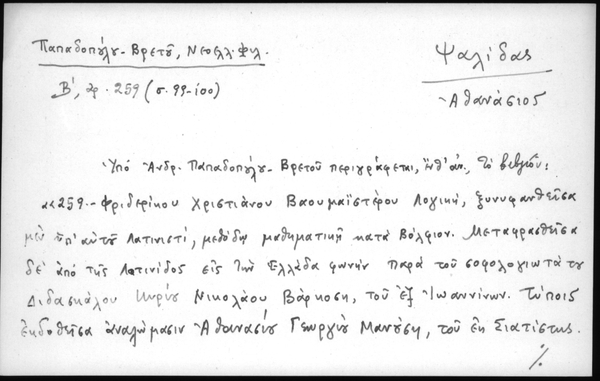 Παπαδοπούλου-Βρετοῦ, Νεοελλ. Φιλ.
Ψαλίδας
Β', ἀρ. 259 (σ. 99-100)
Ἀθανάσιος
Ὑπό Ἀνδρ. Παπαδοπούλου-Βρετοῦ περιγράφεται, ἔνθ' ἀν., τό βιβλίον:
«259.- Φριδερίκου Χριστιάνου Βαουμαϊστέρου Λογική, ξυνυφανθεῖσα
μέν ὑπ' αὐτοῦ Λατινιστί, μεθόδῳ μαθηματικῇ κατά Βόλφιον. Μεταφρασθεῖσα
δέ ἀπό τῆς Λατινίδος εἰς τήν Ἑλλάδα φωνήν παρά τοῦ σοφολογιωτάτου
Διδασκάλου Κυρίου Νικολάου Βάρκοση, τοῦ ἐξ Ἰωαννίνων. Τύποις
ἐκδοθεῖσα ἀναλώμασιν Ἀθανασίου Γεωργίου Μανούση, τοῦ ἐκ Σιατίστης.
./.